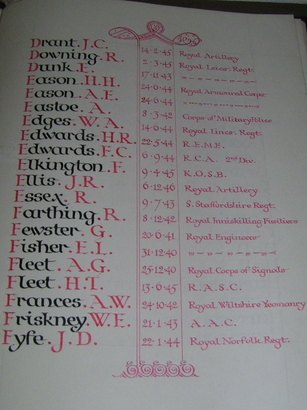 Drant. J.C. 14·2·45 Royal Artillery
Downing. R. 2·3·45 Royal Lincs: Regt:
Dunk. E. 17·11·43 - - - - - -
Eason. H.H. 24·9·44 Royal Armoured Corps
Eason. A.E. 24·6·44 - - - - - -
Eastoe. A. Corps of Military Police
Edges. W.A. 14·6·44 Royal Lincs: Regt:
Edwards. H.R. 22·5·44 R.E.M.E.
Edwards. F.C. 6·9·44 R.C.A. 2nd Div.
Elkington. F. 9·4·45 K.O.S.B.
Ellis. J.R. 6·12·46 Royal Artillery
Essex. R. 9·7·43 S. Staffordshire Regt:
Farthing. R. 8·12·42 Royal Inniskilling Fusiliers
Fewster. G. 20·6·41 Royal Engineers
Fisher. E.I. 31·12·40 - - - - - -
Fleet. A.G. 25·12·40 Royal Corps of Signals
Fleet. H.T. 13·6·45 R.A.S.C.
Frances. A.W. 24·10·42 Royal Wiltshire Yeomanry
Friskney. W.E. 21·1·43 A.A.C.
Fyfe. J.D. 22·1·44 Royal Norfolk Regt: